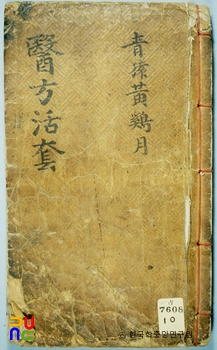 靑凉黃鷄月
醫方活套
7608
10
한국학중앙연구원